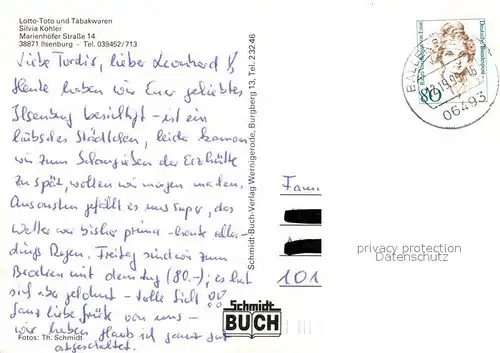 Lotto-Toto und Tabakwaren
Silvia Köhler
Marienhöfer Straße 14
38871 Ilsenburg - Tel. 039452/713
Liebe Turdis, lieber Leonhard
Heute haben wir Euer geliebtes
Ilsenburg besichtigt - ist ein
hübsches Städtchen, leider kamen
wir zum der Erzhütte
zu spät, wollten wir morgen machen.
Ansonsten gefällt es uns super, das
Wetter war bisher prima - heute aller-
dings Regen. Freitag sind wir zum
Brocken mit dem Zug (80.-), es hat
sich aber gelohnt - tolle Sicht
Ganz liebe Grüße von uns -
wir haben glaub ich ganz gut
abgeschaltet.
Fotos: Th. Schmidt
Schmidt-Buch-Verlag Wernigerode, Burgberg 13, Tel. 23246
Schmidt
BUCH
Fam
101
Deutsche Bundespost
80
06493
privacy protection
Datenschutz